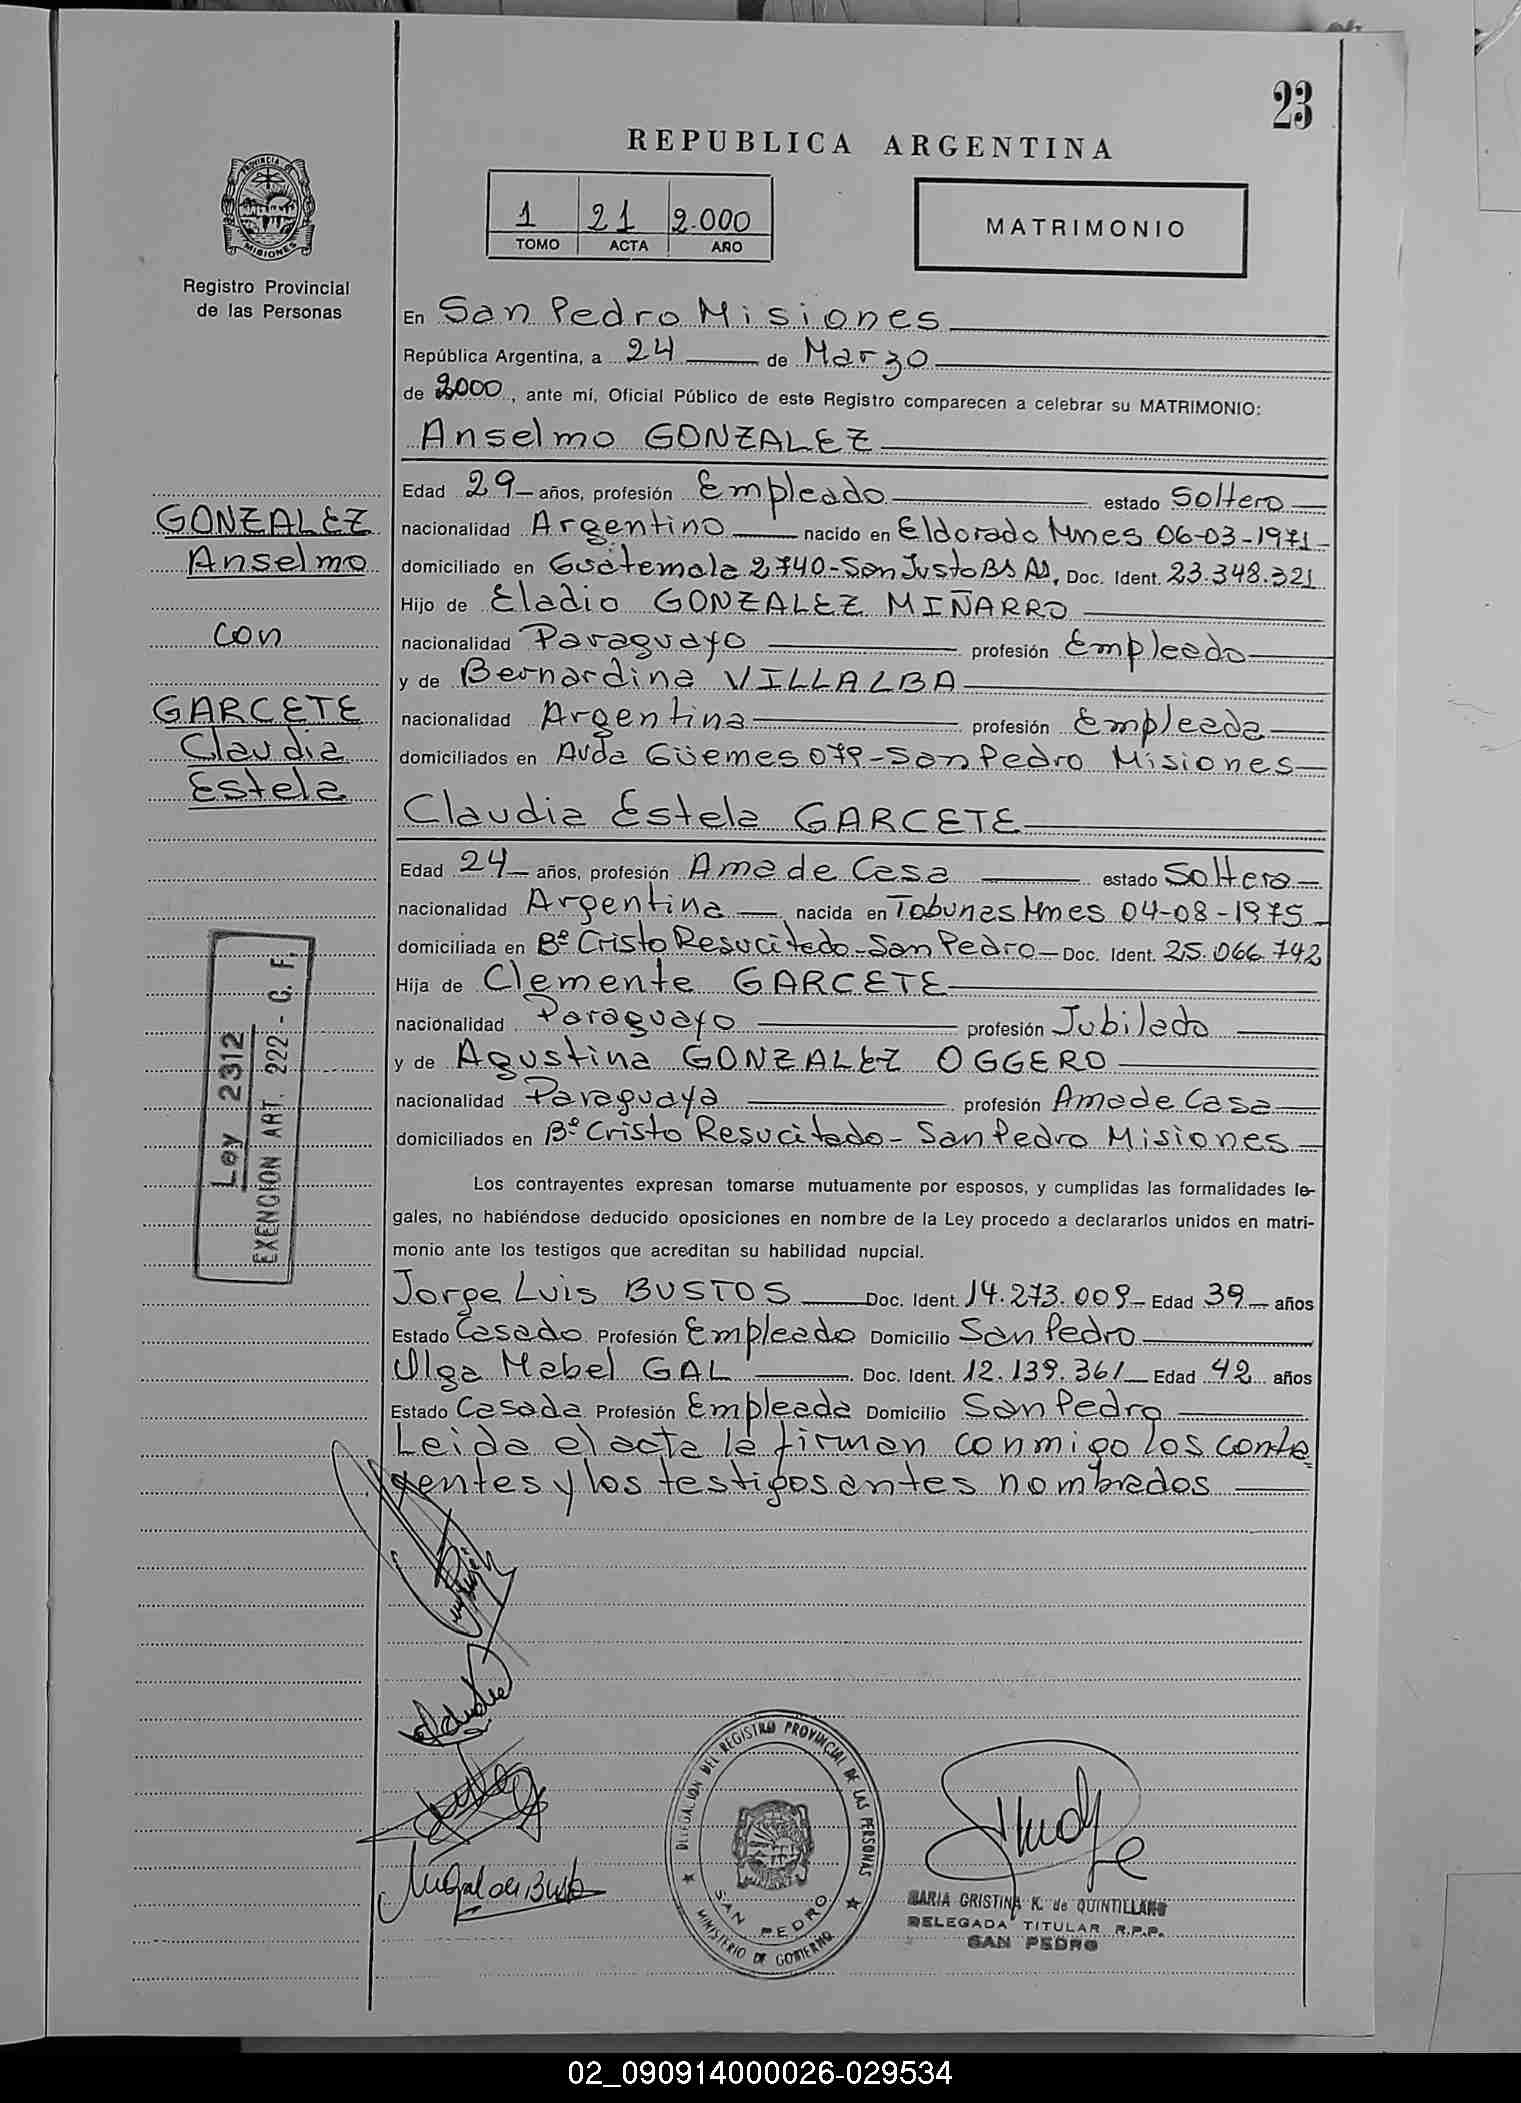 23
REPUBLICA ARGENTINA
PROVINCIA DE
MISIONES
Registro Provincial
de las Personas
1 21 2.000
TOMO ACTA AÑO
MATRIMONIO
En San Pedro Misiones
República Argentina, a 24 de Marzo
de 2000, ante mí, Oficial Público de este Registro comparecen a celebrar su MATRIMONIO:
Anselmo GONZALEZ
Edad 29 años, profesión Empleado estado Soltero
nacionalidad Argentino nacido en Eldorado Mnes 06-03-1971
domiciliado en Guatemala 2740-San Justo BS AS, Doc. Ident. 23.348.321
Hijo de Eladio GONZALEZ MIÑARRO
nacionalidad Paraguayo profesión Empleado
y de Bernardina VILLALBA
nacionalidad Argentina profesión Empleada
domiciliados en Avda Güemes 079-San Pedro Misiones
Claudia Estela GARCETE
Edad 24 años, profesión Ama de Casa estado Soltera
nacionalidad Argentina nacida en Tobunas Mnes 04-08-1975
domiciliada en Bº Cristo Resucitado-San Pedro-Doc. Ident. 25.066.742
Hija de Clemente GARCETE
nacionalidad Paraguayo profesión Jubilado
y de Agustina GONZALEZ OGGERO
nacionalidad Paraguaya profesión Ama de Casa
domiciliados en Bº Cristo Resucitado-San Pedro Misiones
Los contrayentes expresan tomarse mutuamente por esposos, y cumplidas las formalidades le-
gales, no habiéndose deducido oposiciones en nombre de la Ley procedo a declararlos unidos en matri-
monio ante los testigos que acreditan su habilidad nupcial.
Jorge Luis BUSTOS Doc. Ident. 14.273.009 Edad 39 años
Estado Casado Profesión Empleado Domicilio San Pedro
Olga Mabel GAL Doc. Ident. 12.139.361 Edad 42 años
Estado Casada Profesión Empleada Domicilio San Pedro
Leida el acta la firman conmigo los contra
yentes y los testigos antes nombrados
GONZALEZ
Anselmo
con
GARCETE
Claudia
Estela
Ley 2312
EXENCION ART. 222 - C. F.
DELEGACION DEL REGISTRO PROVINCIAL DE LAS PERSONAS
SAN PEDRO
MINISTERIO DE GOBIERNO
MARIA CRISTINA K. de QUINTILLANO
DELEGADA TITULAR R.P.P.
SAN PEDRO
02_090914000026-029534